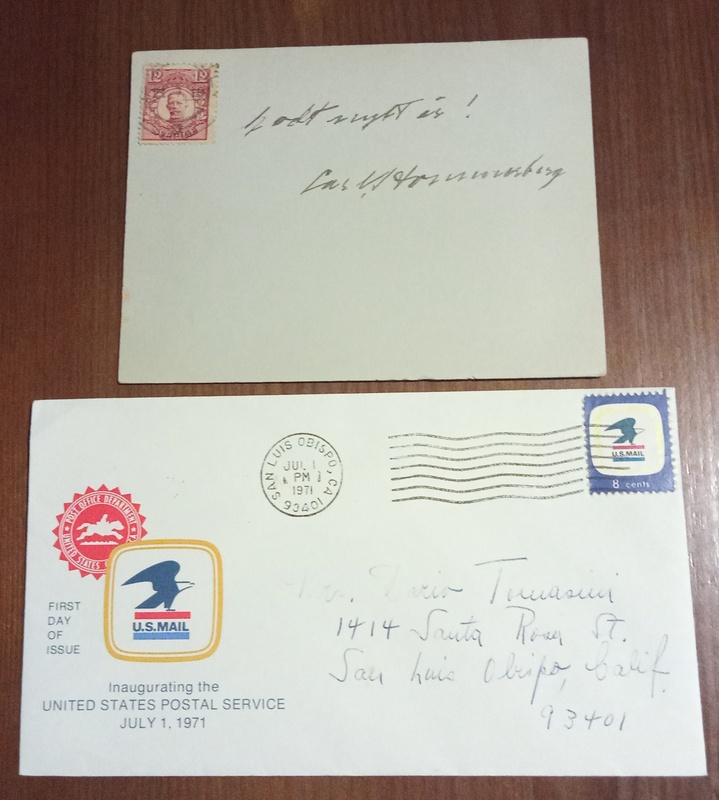 12 12
Godt nytt år!
Carl
SAN LUIS OBISPO, CA
JUL 1
PM
1971
93401
U.S. MAIL
8 cents
POST OFFICE DEPARTMENT
UNITED STATES
FIRST
DAY
OF
ISSUE
U.S.MAIL
Inaugurating the
UNITED STATES POSTAL SERVICE
JULY 1, 1971
Dario Tomasini
1414 Santa Rosa St.
San Luis Obispo, Calif.
93401